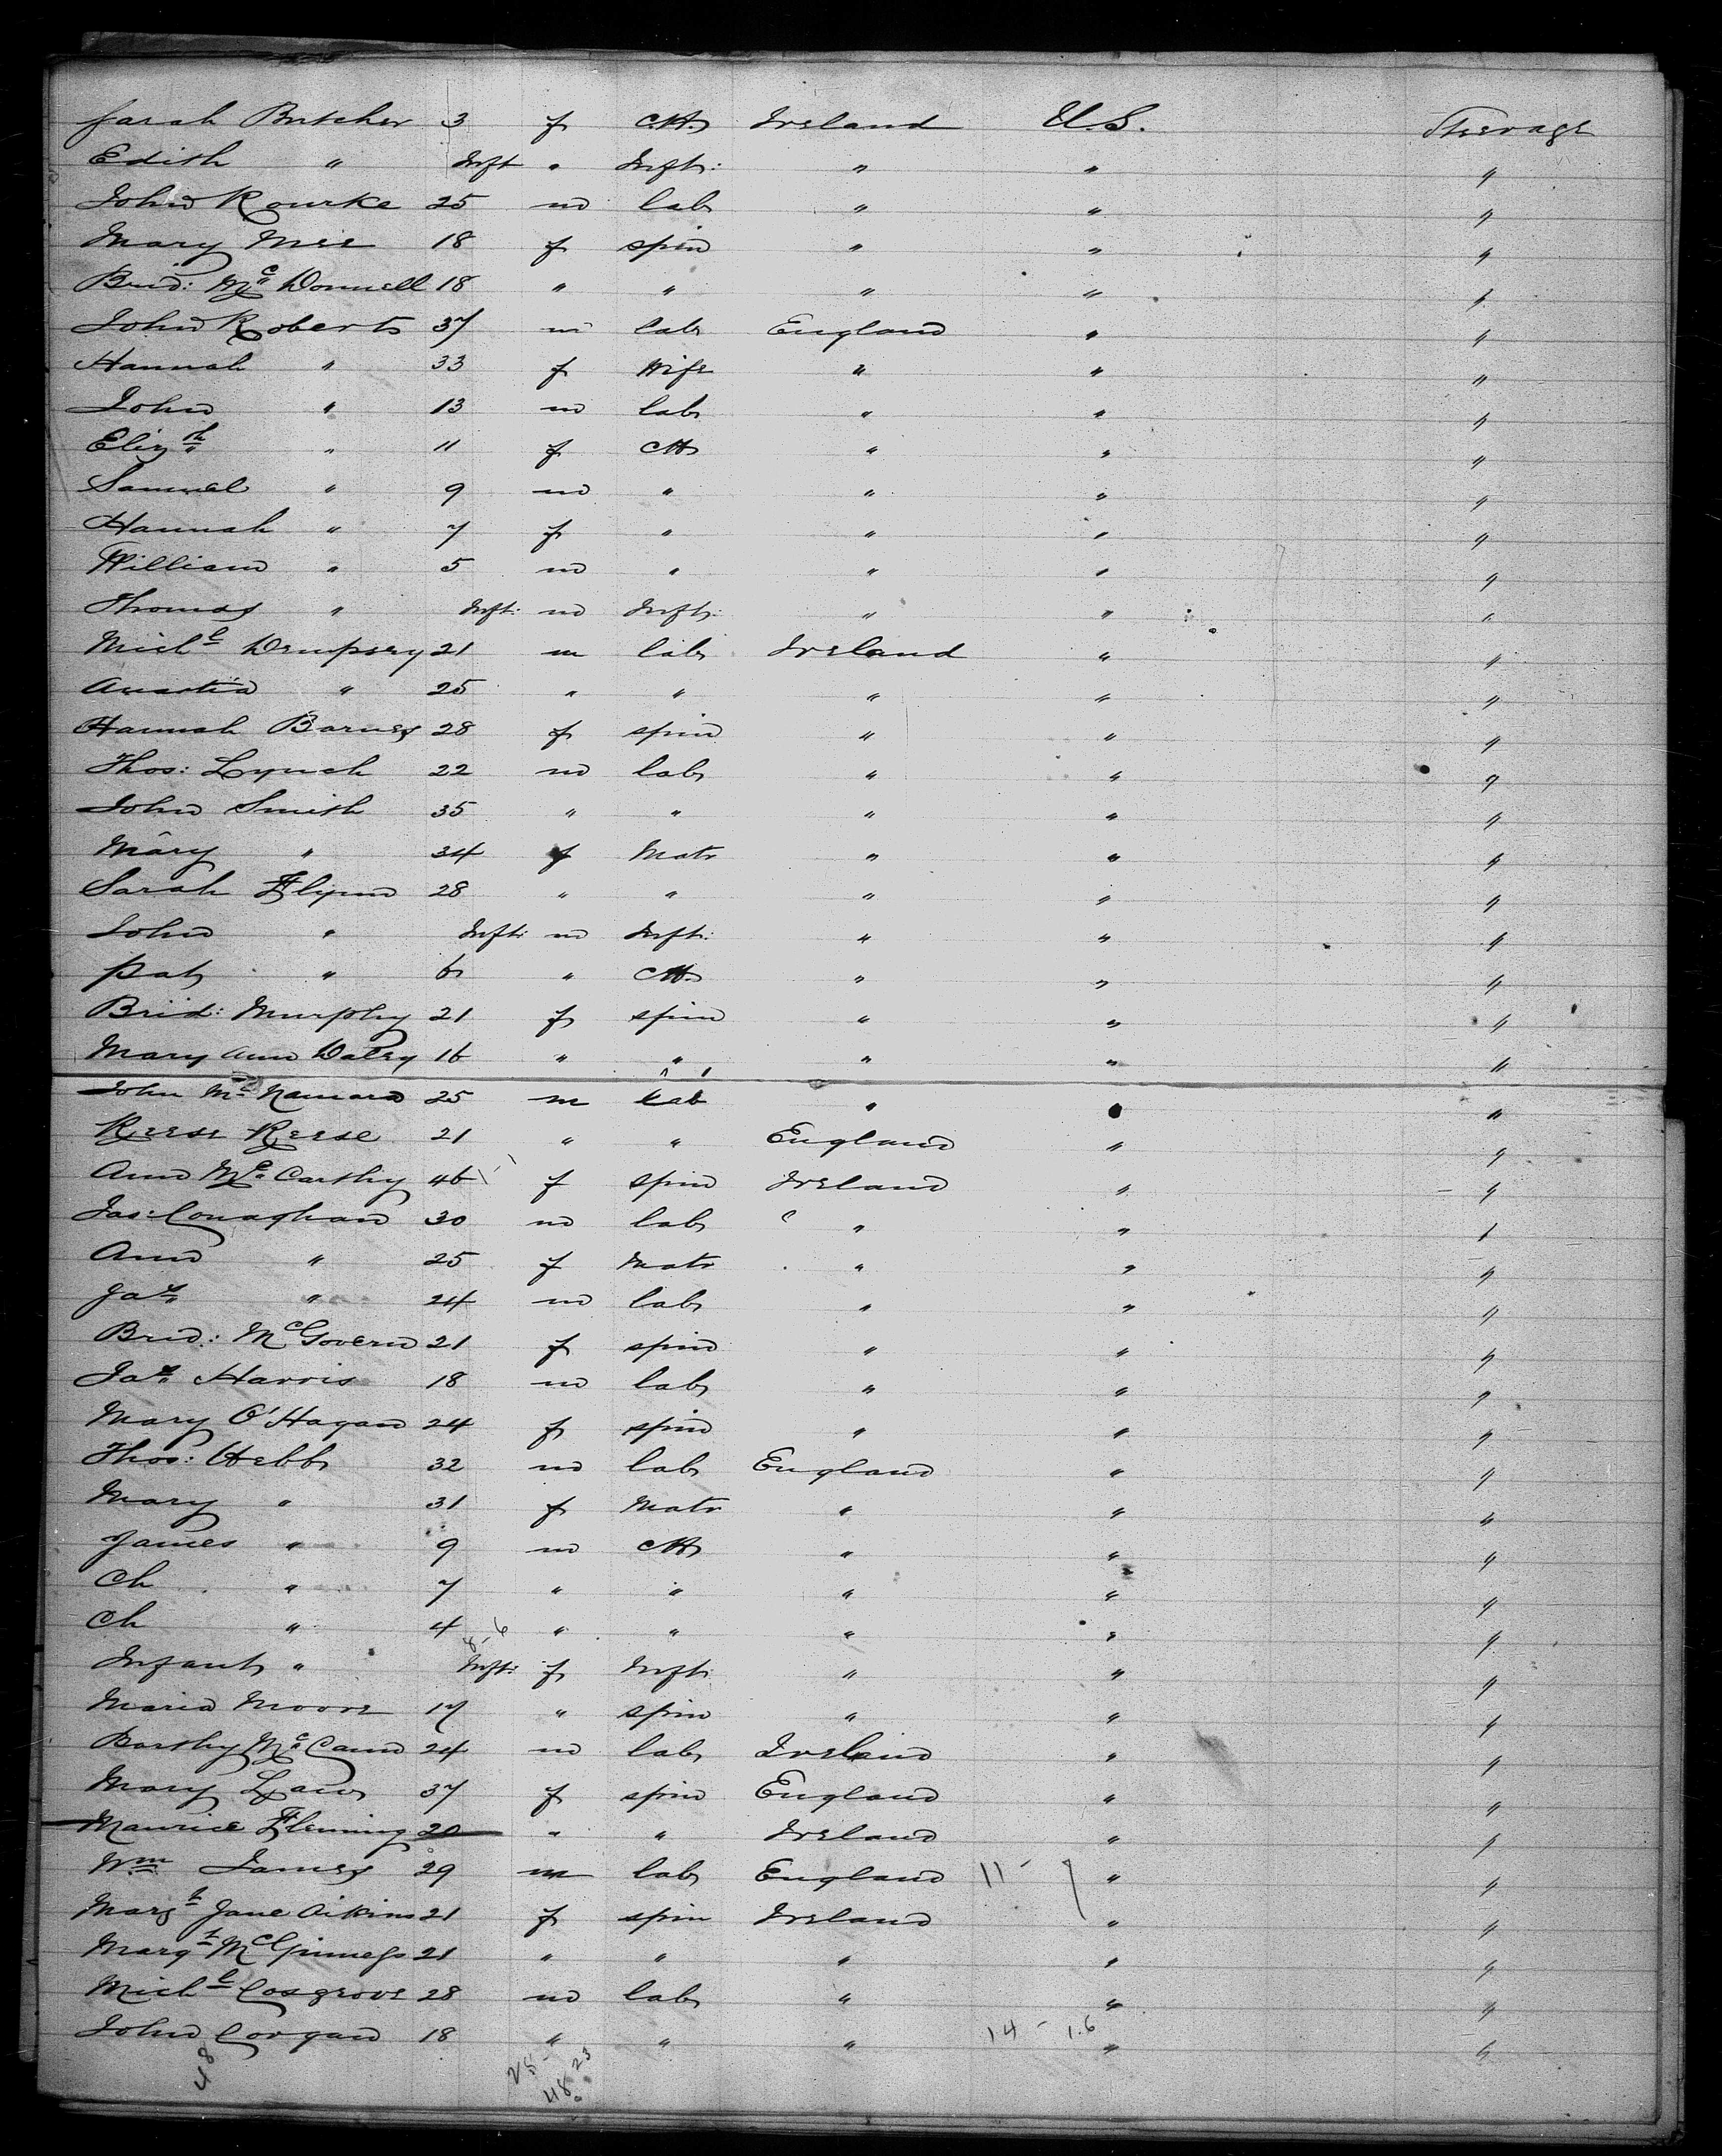 Sarah Butcher 3 f Ch. Ireland U.S. Steerage
Edith " Inft " Inft: " " "
John Rourke 25 m lab " " "
Mary Mee 18 f spin " " "
Brid: Mc Donnell 18 " " " " "
John Roberts 37 m lab England " "
Hannah " 33 f Wife " " "
John " 13 m lab " " "
Elizth " 11 f Ch " " "
Samuel " 9 m " " " "
Hannah " 7 f " " " "
William " 5 m " " " "
Thomas " Inft: m Inft: " " "
Michl Dempsey 21 m lab Ireland " "
" 25 " " " " "
Hannah Barnes 28 f spin " " "
Thos: Lynch 22 m lab " " "
John Smith 35 " " " " "
Mary " 34 f Matr " " "
Sarah Flynn 28 " " " " "
John " Inft: m Inft: " " "
Pat " 6 " Ch. " " "
Brid: Murphy 21 f spin " " "
Mary Ann Daley 16 " " " " "
John Mc Namara 25 m Lab " " "
Reese Reese 21 " " England " "
Ann Mc Carthy 46 f spin Ireland " "
Jas: Conaghan 30 m lab " " "
Ann " 25 f Matr " " "
Jas " 24 m lab " " "
Brid: McGovern 21 f spin " " "
Jas Harris 18 m lab " " "
Mary O'Hagan 24 f spin " " "
Thos: Webb 32 m lab England " "
Mary " 31 f Matr " " "
James " 9 m Ch " " "
Ch " 7 " " " " "
Ch " 4 " " " " "
8-6
Infant " Inft: f Inft: " " "
Maria Moore 17 " spin " " "
Barthy Mc Cann 24 m lab Ireland " "
Mary Law 37 f spin England " "
Maurice Fleming 20 " " Ireland " "
Wm James 29 m lab England 11 - " "
Margt Jane Aikins 21 f spin Ireland " "
Margt McGinness 21 " " " " "
Michl Cosgrove 28 m lab " " "
John Corgan 18 " " " 14 - 1.6 " "
48 25 - 23
48